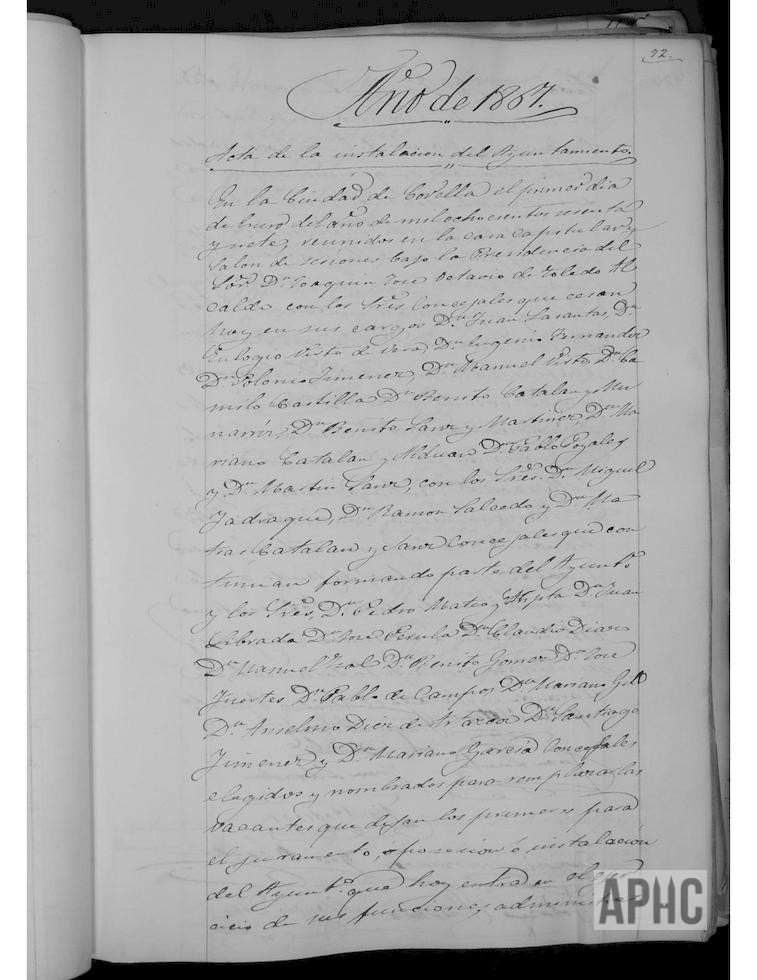 92.
Año de 1867.
Acta de la instalacion del Ayuntamiento.
En la Ciudad de Corella el primer dia
de Enero del año de mil ochocientos sesenta
y siete, reunidos en la casa capitular y
Salon de sesiones bajo la Presidencia del
Sor. Dn. Joaquin José Octavio de Toledo Al
calde con los Sres. Concejales que cesan
hoy en sus cargos Dn. Juan Lasantas, Dn.
Eulogio Visto de Vera, Dn. Eugenio Fernandez
Dn. Polonio Jimenez, Dn. Manuel Visto, Dn. Ca
milo Castilla Dn. Benito Catalan y Mu
narriz, Dn. Benito Sanz y Martinez, Dn. Ma
riano Catalan y Alduan Dn. Pablo Poyales
y Dn. Martin Sanz, con los Sres. Dn. Miguel
Jadraque, Dn. Ramon Salcedo y Dn. Ma
tias Catalan y Sanz Concejales que con
tinuan formando parte del Ayunto.
y los Sres. Dn. Pedro Mateo y Dn. Juan
Librada Dn. José Perula Dn. Claudio Diaz
Dn. Manuel Izal Dn. Benito Gomez Dn. José
Fuertes Dn. Pablo de Campos Dn. Mariano Gil
Dn. Anselmo Diez de Dn. Santiago
Jimenez y Dn. Mariano Garcia Concejales
elegidos y nombrados para remplazar las
vacantes que dejan los primeros para
el juramento, posesion ó instalación
del Ayunto. que hoy entra en el ejer
cicio de sus funciones
APHC